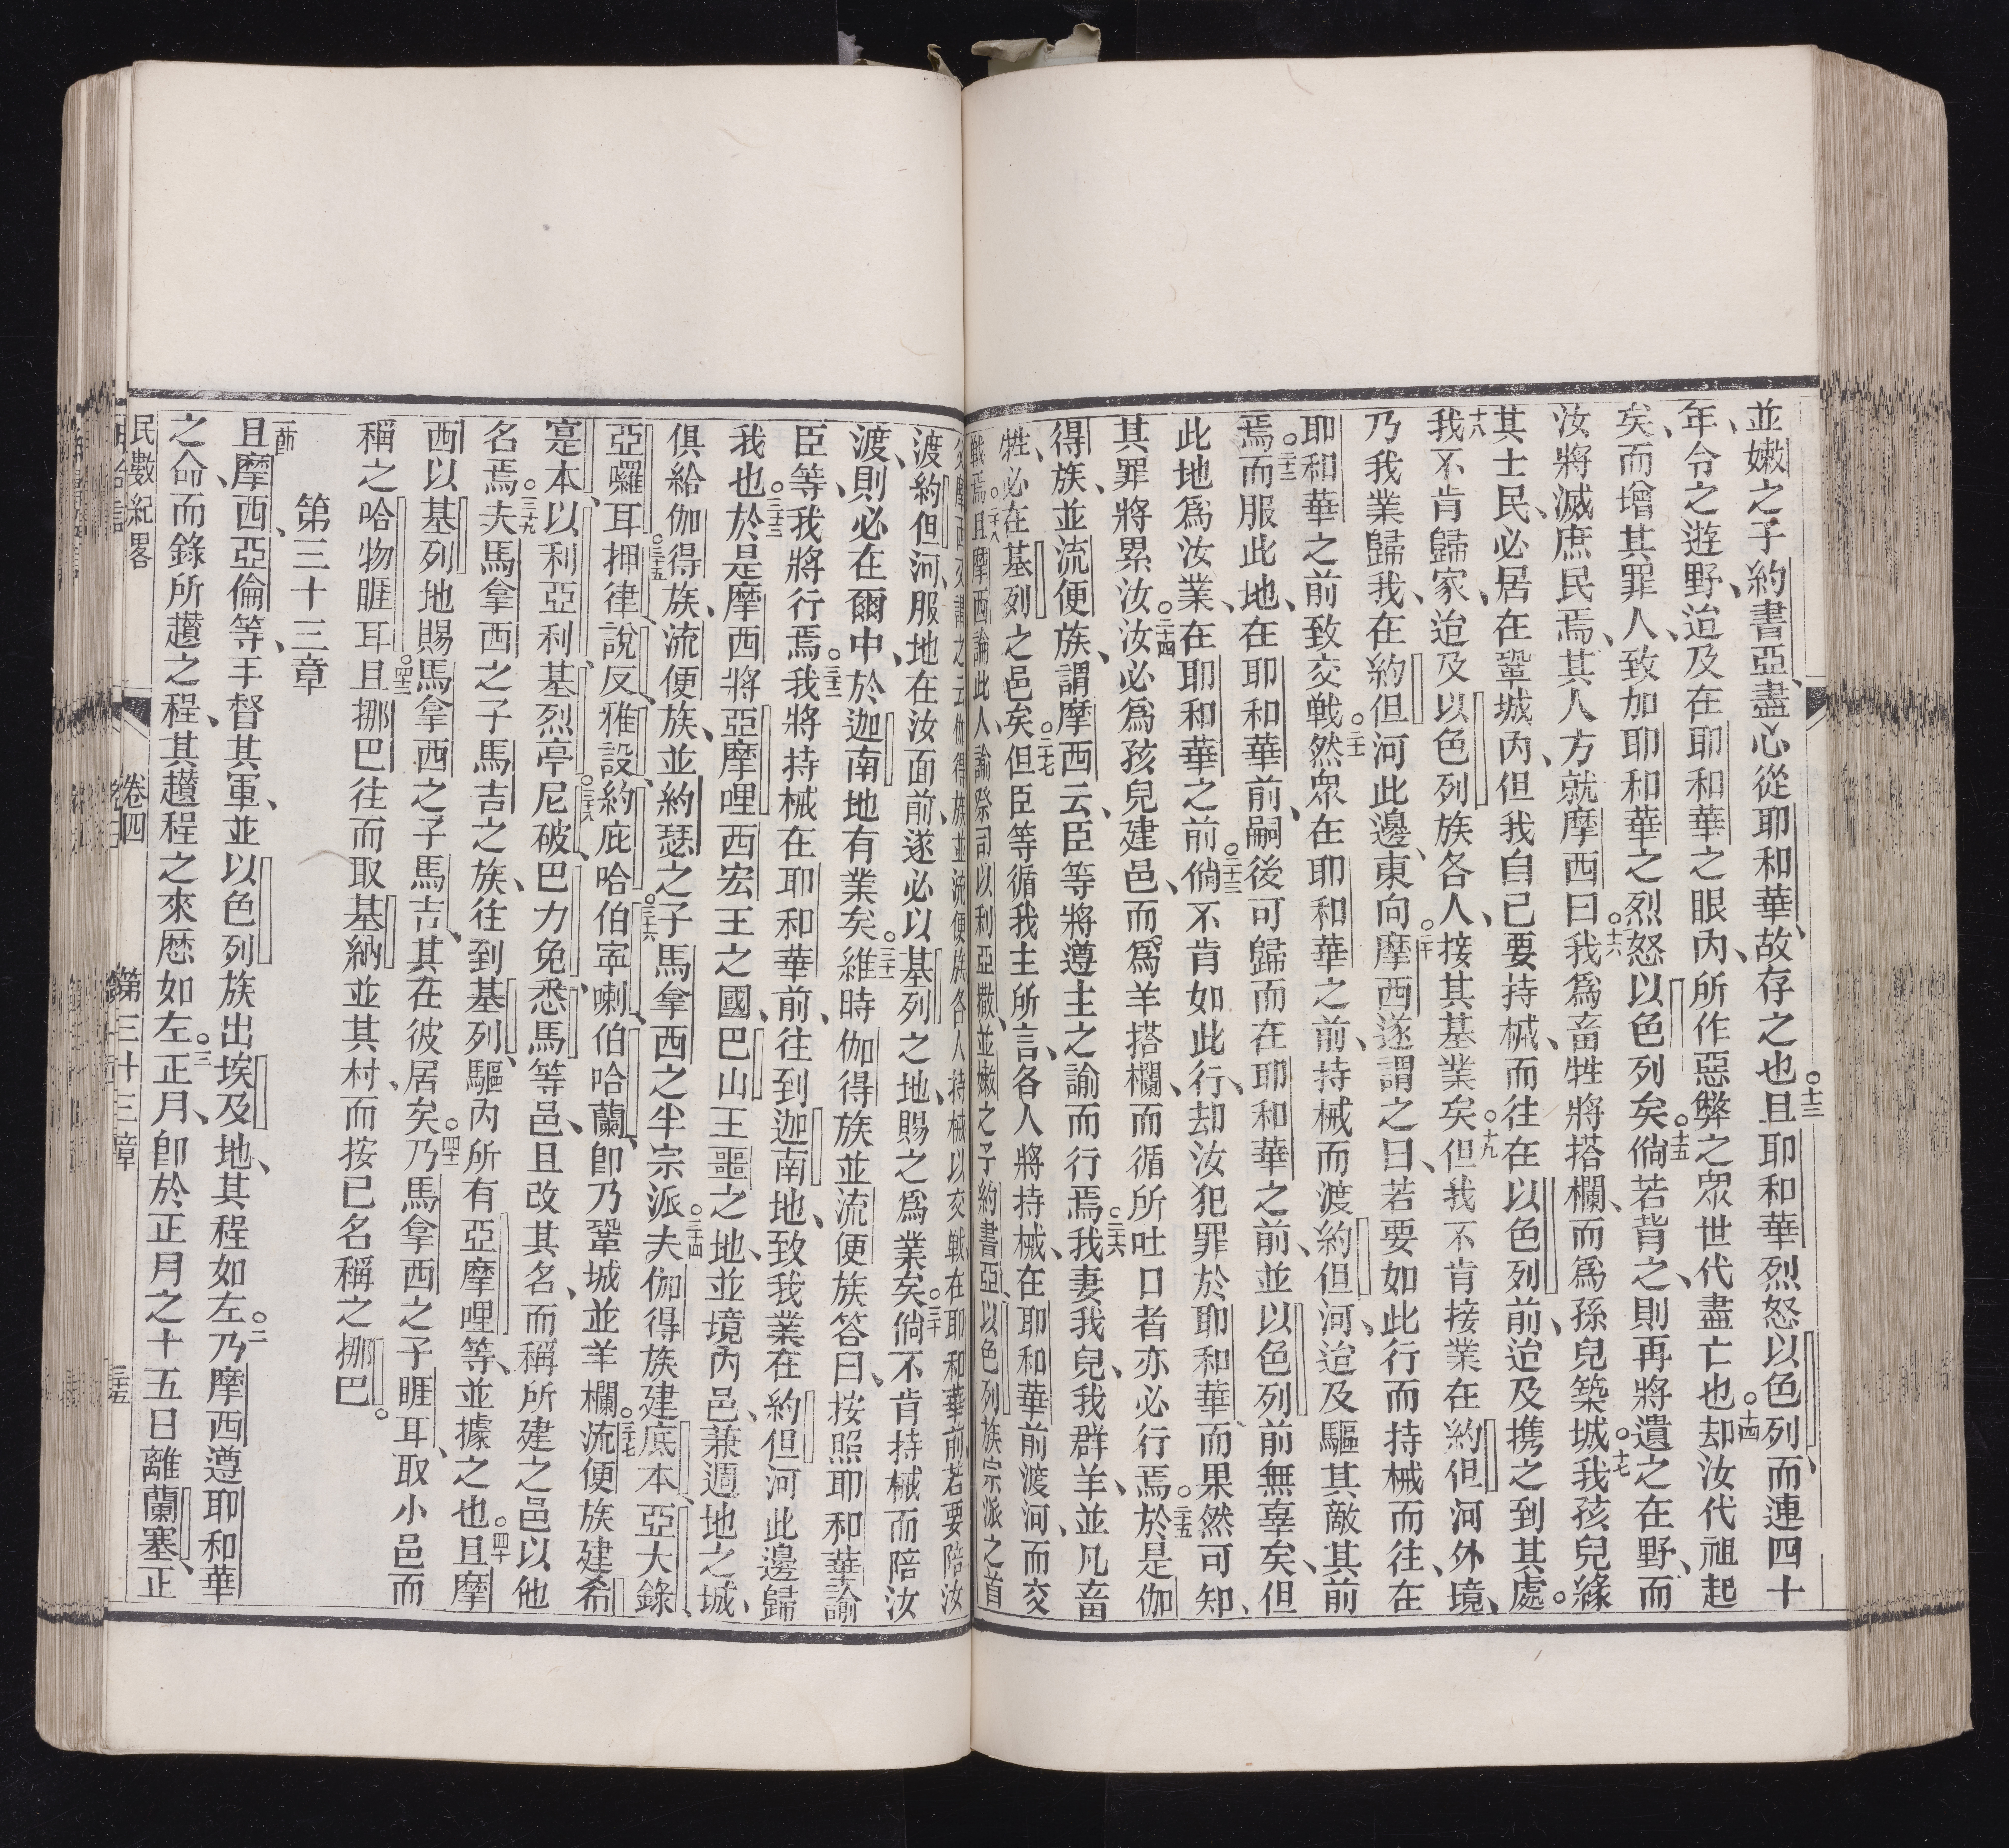 並嫩之子約書亞、盡心從耶和華、故存之也○十三且耶和華烈怒以色列、而連四十
年、令之遊野、迨及在耶和華之眼內、所作惡弊之眾世代盡亡也○十四却汝代祖起
矣、而增其罪人、致加耶和華之烈怒以色列矣○十五倘若背之、則再將遺之在野、而
汝將滅庶民焉、其人方就摩西曰○十六我爲畜牲將搭欄、而爲孫兒築城○十七我孩兒緣
其士民、必居在鞏城內、但我自己要持械、而往在以色列前、迨及携之到其處。
十八我不肯歸家、迨及以色列族各人、接其基業矣○十九但我不肯接業在約但河外境、
乃我業歸我、在約但河此邊、東向○二十摩西遂謂之曰、若要如此行而持械而往、在
耶和華之前致交戰○二十一然眾在耶和華之前、持械而渡約但河、迨及驅其敵其前
焉○二十二而服此地、在耶和華前、嗣後可歸而在耶和華之前、並以色列前無辜矣、但
此地爲汝業、在耶和華之前○二十三倘不肯如此行、却汝犯罪於耶和華、而果然可知、
其罪將累汝○二十四汝必爲孩兒建邑、而爲羊搭欄、而循所吐口者亦必行焉○二十五於是伽
得族、並流便族、謂摩西云、臣等將遵主之諭而行焉○二十六我妻我兒、我群羊、並凡畜
牲、必在基列之邑矣○二十七但臣等循我主所言、各人將持械、在耶和華前渡河、而交
戰焉○二十八且摩西論此人、諭祭司以利亞撒、並嫩之子約書亞、以色列族宗派之首
摩西又謂之云、伽得族並流便族各人持械以交戰、在耶和華前、若要陪汝
渡約但河、服地在汝面前、遂必以基列之地、賜之爲業矣○三十倘不肯持械而陪汝
渡、則必在爾中、於迦南地有業矣○三十一維時伽得族並流便族答曰、按照耶和華諭
臣等、我將行焉○三十二我將持械在耶和華前、往到迦南地、致我業在約但河此邊歸
我也○三十三於是摩西將亞摩哩西宏王之國、巴山王噩之地、並境內邑、兼週地之城、
俱給伽得族、流便族、並約瑟之子馬拿西之半宗派○三十四夫伽得族建底本、亞大錄、
亞囉耳○三十五押律、說反、雅設、約庇哈○三十六伯寍喇、伯哈蘭、卽乃鞏城並羊欄○三十七流便族建希
寔本、以利亞利、基烈亭○三十八尼破、巴力免、悉馬等邑、且改其名、而稱所建之邑以他
名焉○三十九夫馬拿西之子馬吉之族、往到基列、驅內所有亞摩哩等、並據之也○四十且摩
西以基列地賜馬拿西之子馬吉、其在彼居矣○四十一乃馬拿西之子睚耳、取小邑而
稱之哈物睚耳○四十二且挪巴往而取基納並其村、而按已名稱之挪巴。
第三十三章
一節且摩西、亞倫等、手督其軍、並以色列族出埃及地、其程如左○二乃摩西遵耶和華
之命而錄所趲之程、其趲程之來歷如左○三正月、卽於正月之十五日離蘭塞、正
民數紀畧 卷四 第三十三章 三十五